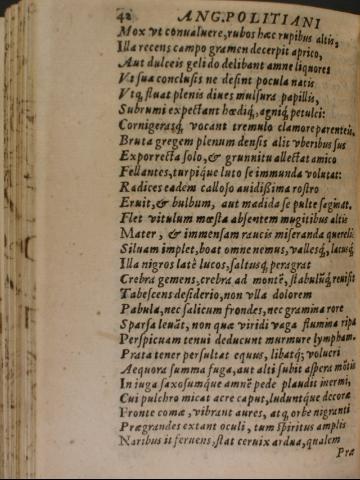 42 ANG. POLITIANI
Mox vt conualuere, rubos hæc rupibus altis,
Illa recens campo gramen decerpit aprico,
Aut dulceis gelido delibant amne liquores
Vt sua conclusis ne desint pocula natis
Vtq, fluat plenis diues mulsura papillis,
Subrumi expectant hœdiq́, agniq́, petulci:
Cornigerasq́, vocant tremulo clamore parenteis.
Bruta gregem plenum densis alit vberibus sus
Exporrecta solo, & grunnitu allectat amico
Fellantes, turpique luto se immunda volutat:
Radices eadem calloso auidißima rostro
Eruit, & bulbum, aut madida se pulte saginat.
Flet vitulum mœsta absentem mugitibus altis
Mater, & immensam raucis miseranda querelis
Siluam implet, boat omne nemus, vallesq́, lacusq́
Illa nigros latè lucos, saltusq́, peragrat
Crebra gemens, crebra ad montē, stabulūq́, reuisit
Tabescens desiderio, non vlla dolorem
Pabula, nec salicum frondes, nec gramina rore
Sparsa leuāt, non quæ viridi vaga flumina ripa
Perspicuam tenui deducunt murmure lympham.
Prata tener persultat equus, libatq́; volucri
Aequora summa fuga, aut alti subit aspera mōtis
In iuga saxosumque amnē pede plaudit inermi,
Cui pulchro micat acre caput, luduntque decoræ
Fronte comæ, vibrant aures, atq, orbe nigranti
Prægrandes extant oculi, tum spiritus amplis
Naribus it feruens, stat ceruix ardua, qualem
Præ